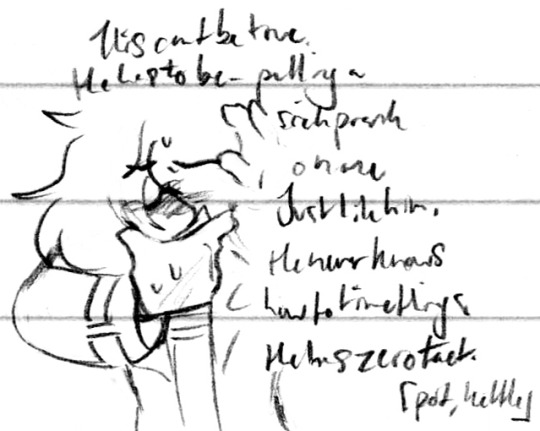 This can't be true.
He has to be - pulling a
sick prank
on me
Just like him.
He never knows
how to time things
He has zero tact.
[pot, kettle]